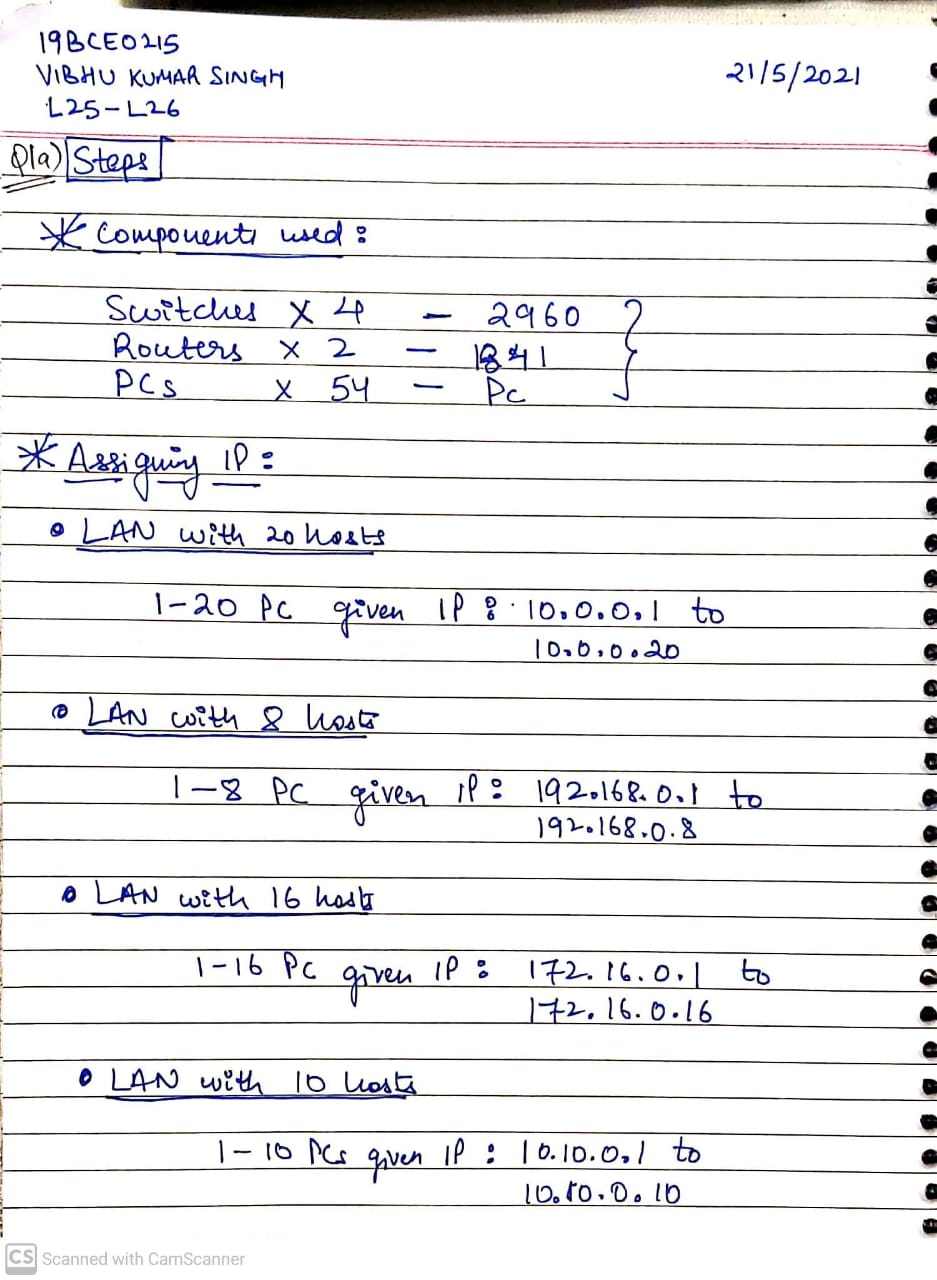 19BCE0215
VIBHU KUMAR SINGH
21/5/2021
L25-L26
Q1a) Steps
* Components used :
Switches X 4 - 2960
Routers X 2 - 1841
PCs X 54 - Pc
* Assigning IP :
• LAN with 20 hosts
1-20 PC given IP : 10.0.0.1 to
10.0.0.20
• LAN with 8 hosts
1-8 PC given IP : 192.168.0.1 to
192.168.0.8
• LAN with 16 hosts
1-16 PC given IP : 172.16.0.1 to
172.16.0.16
• LAN with 10 hosts
1-10 PCs given IP : 10.10.0.1 to
10.10.0.10
CS Scanned with CamScanner